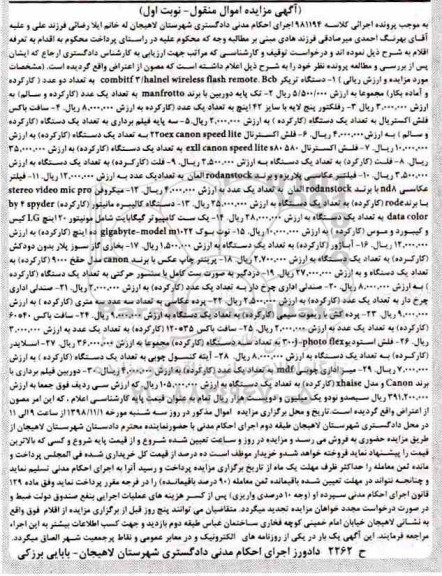 (آگهی مزایده اموال منقول- نوبت اول)
به موجب پرونده اجرائی کلاسه ۹۸۱۱۹۴ اجرای احکام مدنی دادگستری شهرستان لاهیجان له خانم ایلا رضائی فرزند علی و علیه
آقای بهرنگ احمدی میرصادقی فرزند هادی مبنی بر مطالبه وجه که محکوم علیه در راستای پرداخت محکوم به اقدام به تعرفه
اقلام به شرح ذیل نموده اند و درخواست توقیف و کارشناسی که مراتب جهت ارزیابی به کارشناس دادگستری ارجاع که ایشان
پس از بررسی و مطالعه پرونده نظر خود را به شرح ذیل اعلام داشته است که مصون از اعتراض واقع گردیده است. (مشخصات
مورد مزایده و ارزش ریالی) ۱- دستگاه تریگر combitf ۳/halnel wireless flash remote. Bcb به تعداد دو عدد (کارکرده
و آماده بکار) مجموعا به ارزش ۵/۵۰۰/۰۰۰ ریال ۲- تک پایه دوربین با برند manfrotto به تعداد یک عدد (کارکرده و سالم) به
ارزش ۳.۰۰۰.۰۰۰ ریال ۳- رفلکتور پنج لایه با سایز ۴۲ اینچ به تعداد یک عدد (کارکرده) به ارزش ۸.۰۰۰.۰۰۰ ریال. ۴- سافت باکس
فلش اکسترنال به تعداد یک دستگاه (کارکرده) به ارزش ۲.۰۰۰.۰۰۰ ریال. ۵- سه پایه فیلم برداری به تعداد یک دستگاه (کارکرده
و سالم) به ارزش ۴.۰۰۰.۰۰۰ ریال. ۶- فلش اکسترنال ۲۲۰ex canon speed lite به تعداد یک دستگاه (کارکرده) به ارزش
۱۰.۰۰۰.۰۰۰ ریال. ۷- فلش اکسترنال exll canon speed lite s۸۰ ۵۸۰ به تعداد یک دستگاه (کارکرده) به ارزش ۳۵.۰۰۰.۰۰۰
ریال. ۸- فلت (کارکرده) به تعداد یک دستگاه به ارزش ۲.۵۰۰.۰۰۰ ریال. ۹- فلت (کارکرده) به تعداد یک دستگاه به ارزش
۳.۵۰۰.۰۰۰ ریال. ۱۰- فیلتر عکاسی پلاریزه و برند rodanstock آلمان به تعداد یک عدد به ارزش ۱۲.۰۰۰.۰۰۰ ریال. ۱۱- فیلتر
عکاسی nd۸ با برند rodanstock آلمان به تعداد یک عدد به ارزش ۴.۰۰۰.۰۰۰ ریال. ۱۲- میکروفن stereo video mic pro
با برند rode (کارکرده) به تعداد یک دستگاه به ارزش ۲۵.۰۰۰.۰۰۰ ریال. ۱۳- دستگاه کالیبره مانیتور (کارکرده) by ۴ spyder
data color به تعداد یک دستگاه به ارزش ۲۸.۰۰۰.۰۰۰ ریال. ۱۴- یک ست کامپیوتر گیگابایت شامل مونیتور ۲۰ اینچ LG کیس
و کیبورد و موس (کارکرده) به ارزش ۱۰.۰۰۰.۰۰۰ ریال. ۱۵- نوت بوک gigabyte-model m۱۰۲۲ ده اینچ (کارکرده) به ارزش
۱۲.۰۰۰.۰۰۰ ریال. ۱۶- آباژور (کارکرده) به تعداد یک دستگاه به ارزش ۱.۵۰۰.۰۰۰ ریال. ۱۷- بخاری گاز سوز پلار بدون دودکش
(کارکرده) به تعداد یک دستگاه به ارزش ۲.۷۰۰.۰۰۰ ریال. ۱۸- پرینتر چاپ عکس با برند canon مدل حقح ۹۰۰۰ (کارکرده) به
تعداد یک دستگاه و به ارزش ۲۷.۰۰۰.۰۰۰ ریال. ۱۹- دزدگیر به صورت ست کامل با سنسور حرکتی به تعداد یک دستگاه (کارکرده)
به ارزش ۸.۰۰۰.۰۰۰ ریال. ۲۰- صندلی اداری چرخ دار به تعداد یک دستگاه (کارکرده) به ارزش ۲.۰۰۰.۰۰۰ ریال. ۲۱- صندلی اداری
چرخ دار به تعداد یک عدد (کارکرده) به ارزش ۲.۵۰۰.۰۰۰ ریال. ۲۲- پرده عکاسی به تعداد سه عدد سه متری (کارکرده) به ارزش
۹.۰۰۰.۰۰۰ ریال. ۲۳- پرده کش ریموت سیمی (کارکرده) به تعداد یک دستگاه به ارزش ۹.۰۰۰.۰۰۰ ریال. ۲۴- سافت باکس ۴۰*۶۰
(کارکرده) به تعداد یک عدد به ارزش ۲.۰۰۰.۰۰۰ ریال. ۲۵- سافت باکس ۳۵*۱۲۰ (کارکرده) به تعداد یک عدد به ارزش ۳.۰۰۰.۰۰۰
ریال. ۲۶- فلش استودیو ۳۰۰j-photo flex به تعداد سه دستگاه (کارکرده) مجموعا به ارزش ۳۶.۰۰۰.۰۰۰ ریال. ۲۷- اسلایدر
(کارکرده) به تعداد یک دستگاه به ارزش ۸.۰۰۰.۰۰۰ ریال. ۲۸- آیته کنسول چوبی به تعداد یک دستگاه (کارکرده) به ارزش
۷.۰۰۰.۰۰۰ ریال. ۲۹- میز اداری چوبی mdf به تعداد یک عدد (کارکرده) به ارزش ۴.۰۰۰.۰۰۰ ریال. ۳۰- دوربین فیلم برداری با
برند Canon و مدل xhaise (کارکرده) به تعداد یک دستگاه به ارزش ۱۰۵.۰۰۰.۰۰۰ ریال که ارزش سی ردیف فوق جمعا به ارزش
۳۹۱.۲۰۰.۰۰۰ ریال سیصدو نودو یک میلیون و دویست هزار ریال تمام به عنوان قیمت پایه کارشناسی اعلام، که این امر مصون
از اعتراض واقع گردیده است. تاریخ و محل برگزاری مزایده اموال مذکور در روز سه شنبه مورخه ۱۳۹۸/۱۱/۱ از ساعت ۹ الی ۱۱
در محل دادگستری شهرستان لاهیجان طبقه دوم اجرای احکام مدنی با حضور نماینده محترم دادستان شهرستان لاهیجان از
طریق مزایده حضوری به فروش می رسد و مزایده در روز و ساعت تعیین شده شروع و از قیمت پایه شروع و کسی که بالاترین
قیمت را پیشنهاد نماید فروخته خواهد شد و خریدار موظف است ده درصد از قیمت کل خریداری شده فی المجلس پرداخت و
مانده ثمن معامله را حداکثر ظرف مهلت یک ماه از تاریخ برگزاری مزایده پرداخت و رسید آنرا به اجرای احکام مدنی تسلیم نماید
و چنانچه نتواند در مهلت تعیین شده باقیمانده ثمن معامله (۹۰ درصد باقیمانده) را در فرجه مقرر پرداخت نماید وفق ماده ۱۲۹
قانون اجرای احکام مدنی سپرده او (وجه ۱۰ درصدی واریزی) پس از کسر هزینه های عملیات اجرایی بنفع صندوق دولت ضبط و
در صورت درخواست مجدد خواهان مزایده تجدید میگردد. متقاضیان می توانند پنج روز قبل از برگزاری مزایده از اقلام فوق واقع
به نشانی لاهیجان خیابان امام خمینی کوچه فخاری ساختمان عباس طبقه دوم بازدید و جهت کسب اطلاعات بیشتر به این اجراء
مراجعه فرمایند. این آگهی یک بار در یکی از روزنامه های الکترونیک و در معابر عمومی و نقاط پرجمعیت شهر الصاق میگردد.
ح ۲۲۶۲ دادورز اجرای احکام مدنی دادگستری شهرستان لاهیجان- بابایی برزکی